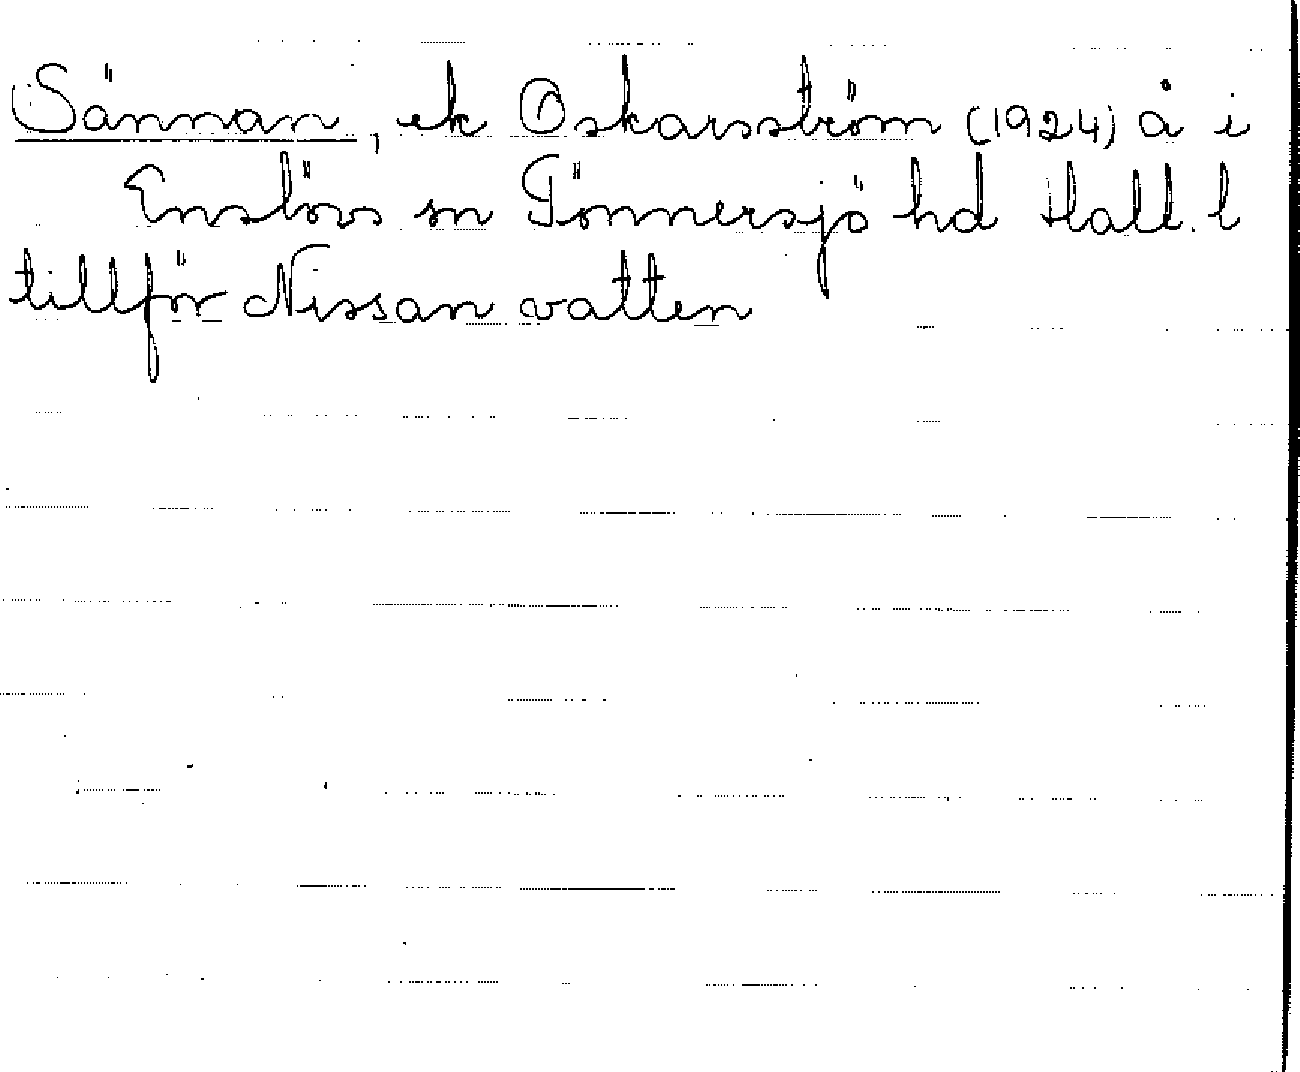 Sännan, ek Oskarsström (1924) å i
Enslövs sn Tönnersjö hd Hall. l
tillför Nissan vatten